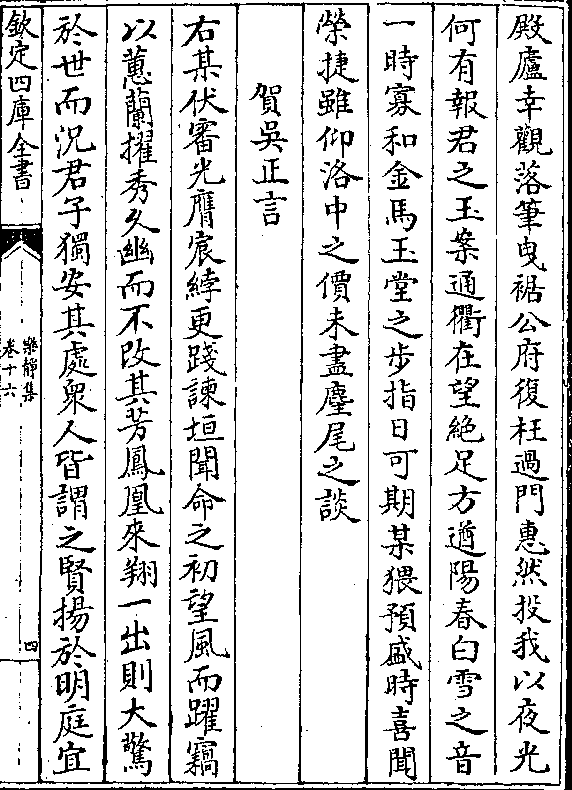 殿廬幸觀落筆曳裾公府復枉過門惠然投我以夜光
何有報君之玉案通衢在望絶足方遒陽春白雪之音
一時寡和金馬玉堂之步指日可期某猥預盛時喜聞
榮捷雖仰洛中之價未盡麈尾之談
賀吳正言
右某伏審光膺宸綍更踐諫垣聞命之初望風而躍竊
以蕙蘭擢秀久幽而不改其芳鳳凰來翔一出則大驚
於世而況君子獨安其處衆人皆謂之賢揚於明庭宜
欽定四庫全書
樂静集
卷十六
四